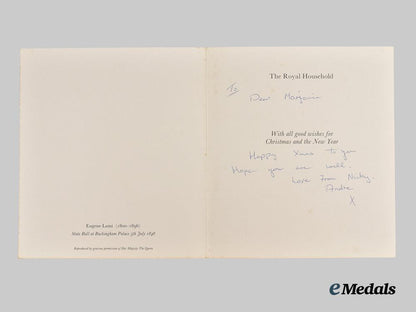 Eugene Lami (1800-1890)
State Ball at Buckingham Palace 5th July 1848
Reproduced by gracious permission of Her Majesty The Queen
The Royal Household
To
Dear Marjorie
With all good wishes for
Christmas and the New Year
Happy Xmas to you
Hope you are well.
Love from Nicky.
Andre
X
eMedals